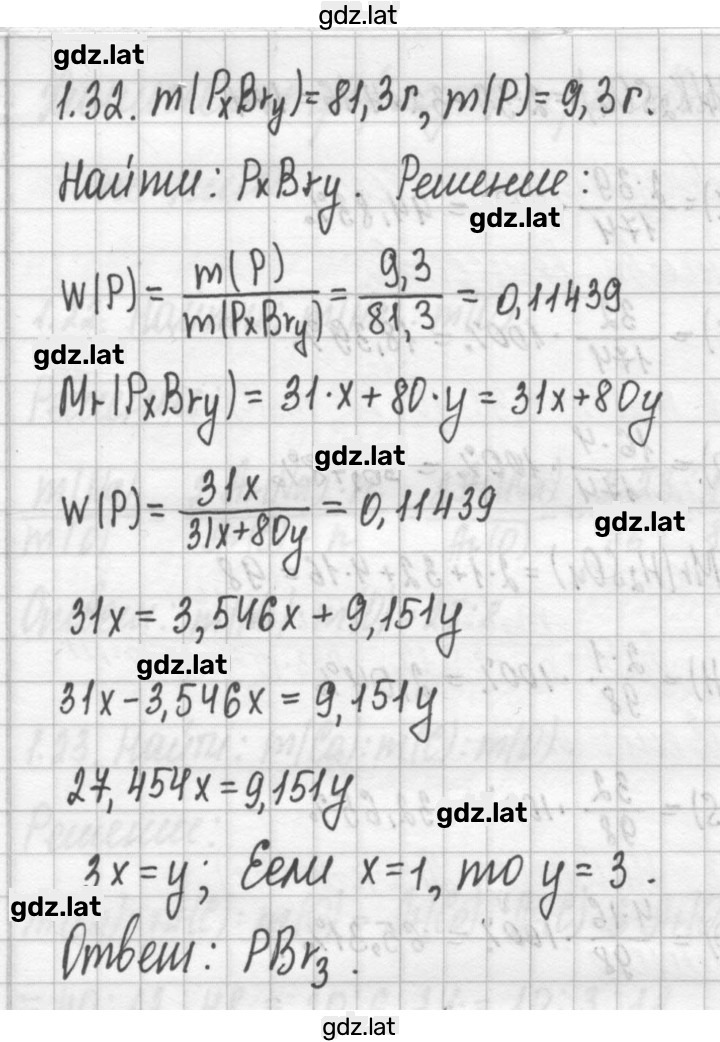 gdz.lat
gdz.lat
1.32. m(PxBry)=81,3г, m(P)=9,3г.
Найти: PxBry. Решение:
gdz.lat
W(P) = m(P)/m(PxBry) = 9,3/81,3 = 0,11439
gdz.lat
Mr(PxBry) = 31·x + 80·y = 31x+80y
gdz.lat
W(P) = 31x/31x+80y = 0,11439
gdz.lat
31x = 3,546x + 9,151y
gdz.lat
31x - 3,546x = 9,151y
27,454x = 9,151y
gdz.lat
3x = y; Если x=1, то y = 3.
gdz.lat
Ответ: PBr3.
gdz.lat